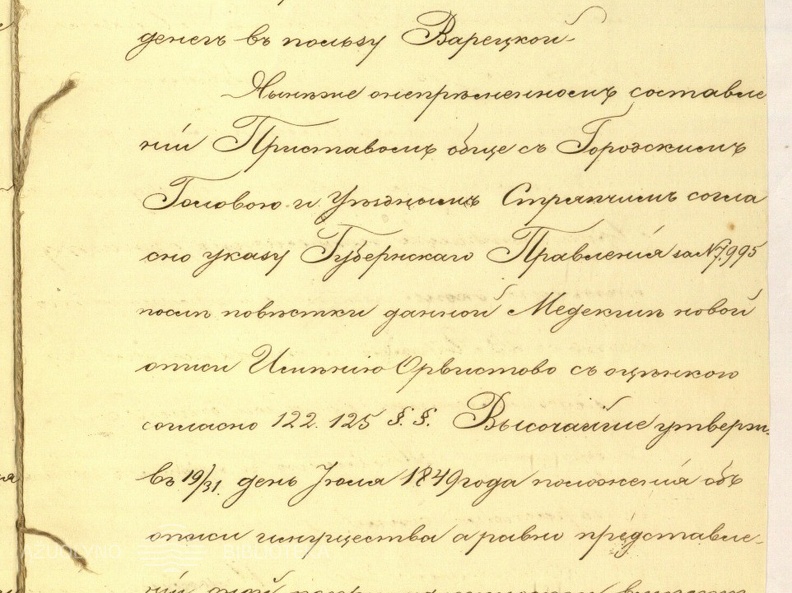 денегъ въ пользу Варецкой
Нынеже онепремѣнномъ составле
ніи Приставомъ обще съ Городскимъ
Головою и Уѣзднымъ Стряпчимъ согла
сно указу Губернскаго Правленія за № 7,995
послѣ повѣстки данной Медекшѣ новой
описи Имѣнію Орвистово съ оцѣнкою
согласно 122. 125 §. §. Высочайше утверж.
въ 19/31. день Іюля 1849 года положенія объ
описи имущества а равно представле-
ніи
AZUOLYNO BIBLIOTEKA